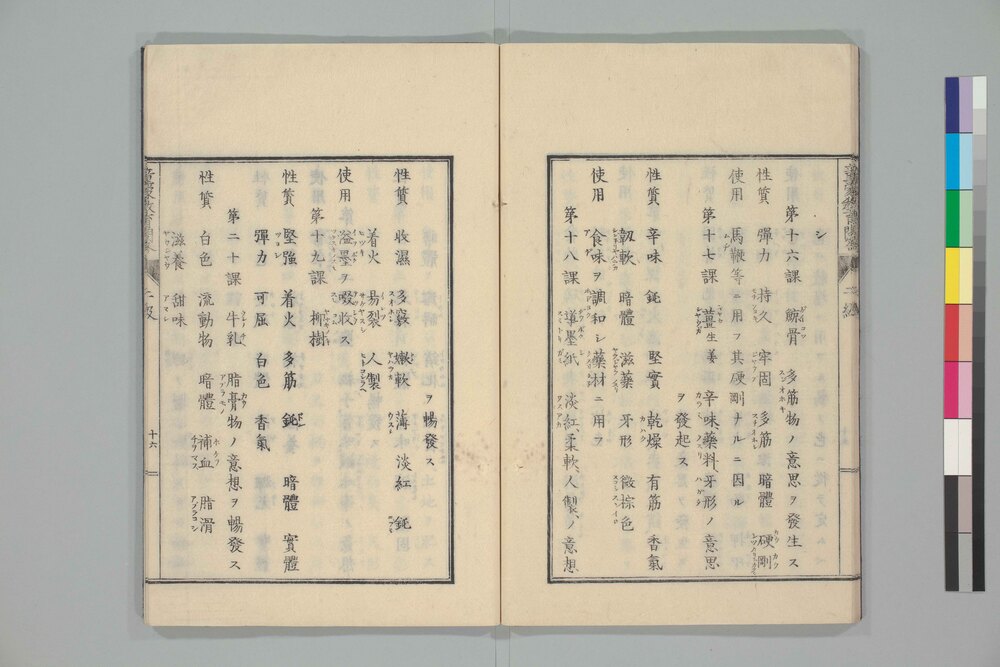 シ
第十六課 鯨骨 多筋物ノ意思ヲ發生ス
性質 彈力 持久 牢固 多筋 暗體 硬剛
使用 馬鞭等ニ用フ其硬剛ナルニ因ル
第十七課 薑 生姜 辛味、藥料、牙形ノ意思
ヲ發起ス
性質 辛味 鈍 堅實 乾燥 有筋 香氣
靱軟 暗體 滋藥 牙形 微棕色
使用 食味ヲ調和シ藥材ニ用ヲ
第十八課 導墨紙 淡紅、柔軟、人製、ノ意想
ヲ暢發ス
性質 收濕 多竅 嫩軟 薄 淡紅 鈍
着火 易裂 人製
使用 溢墨ヲ吸收ス
第十九課 柳樹
性質 堅強 着火 多筋 鈍 暗體 實體
彈力 可屈 白色 香氣
第二十課 牛乳 脂膏物ノ意想ヲ暢發ス
性質 白色 流動物 暗體 補血 脂滑
滋養 甜味
二級
十六